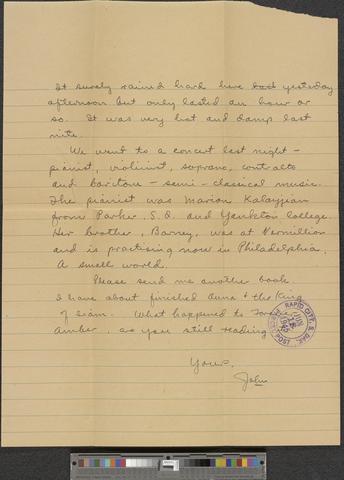 It surely rained hard here yesterday
afternoon but only lasted an hour or
so. It was very hot and damp last
nite.
We went to a concert last night -
pianist, violinist, soprano, contralto
and baritone - semi-classical music.
The pianist was Marion Kalayjian
from Parker, S.D. and Yankton College.
Her brother, Barney, was at Vermillion
and is practising now in Philadelphia.
A small world.
Please send me another book.
I have about finished Anna & the King
of Siam. What happened to
Amber, are you still reading
Yours,
John
RAPID CITY, S. DAK.